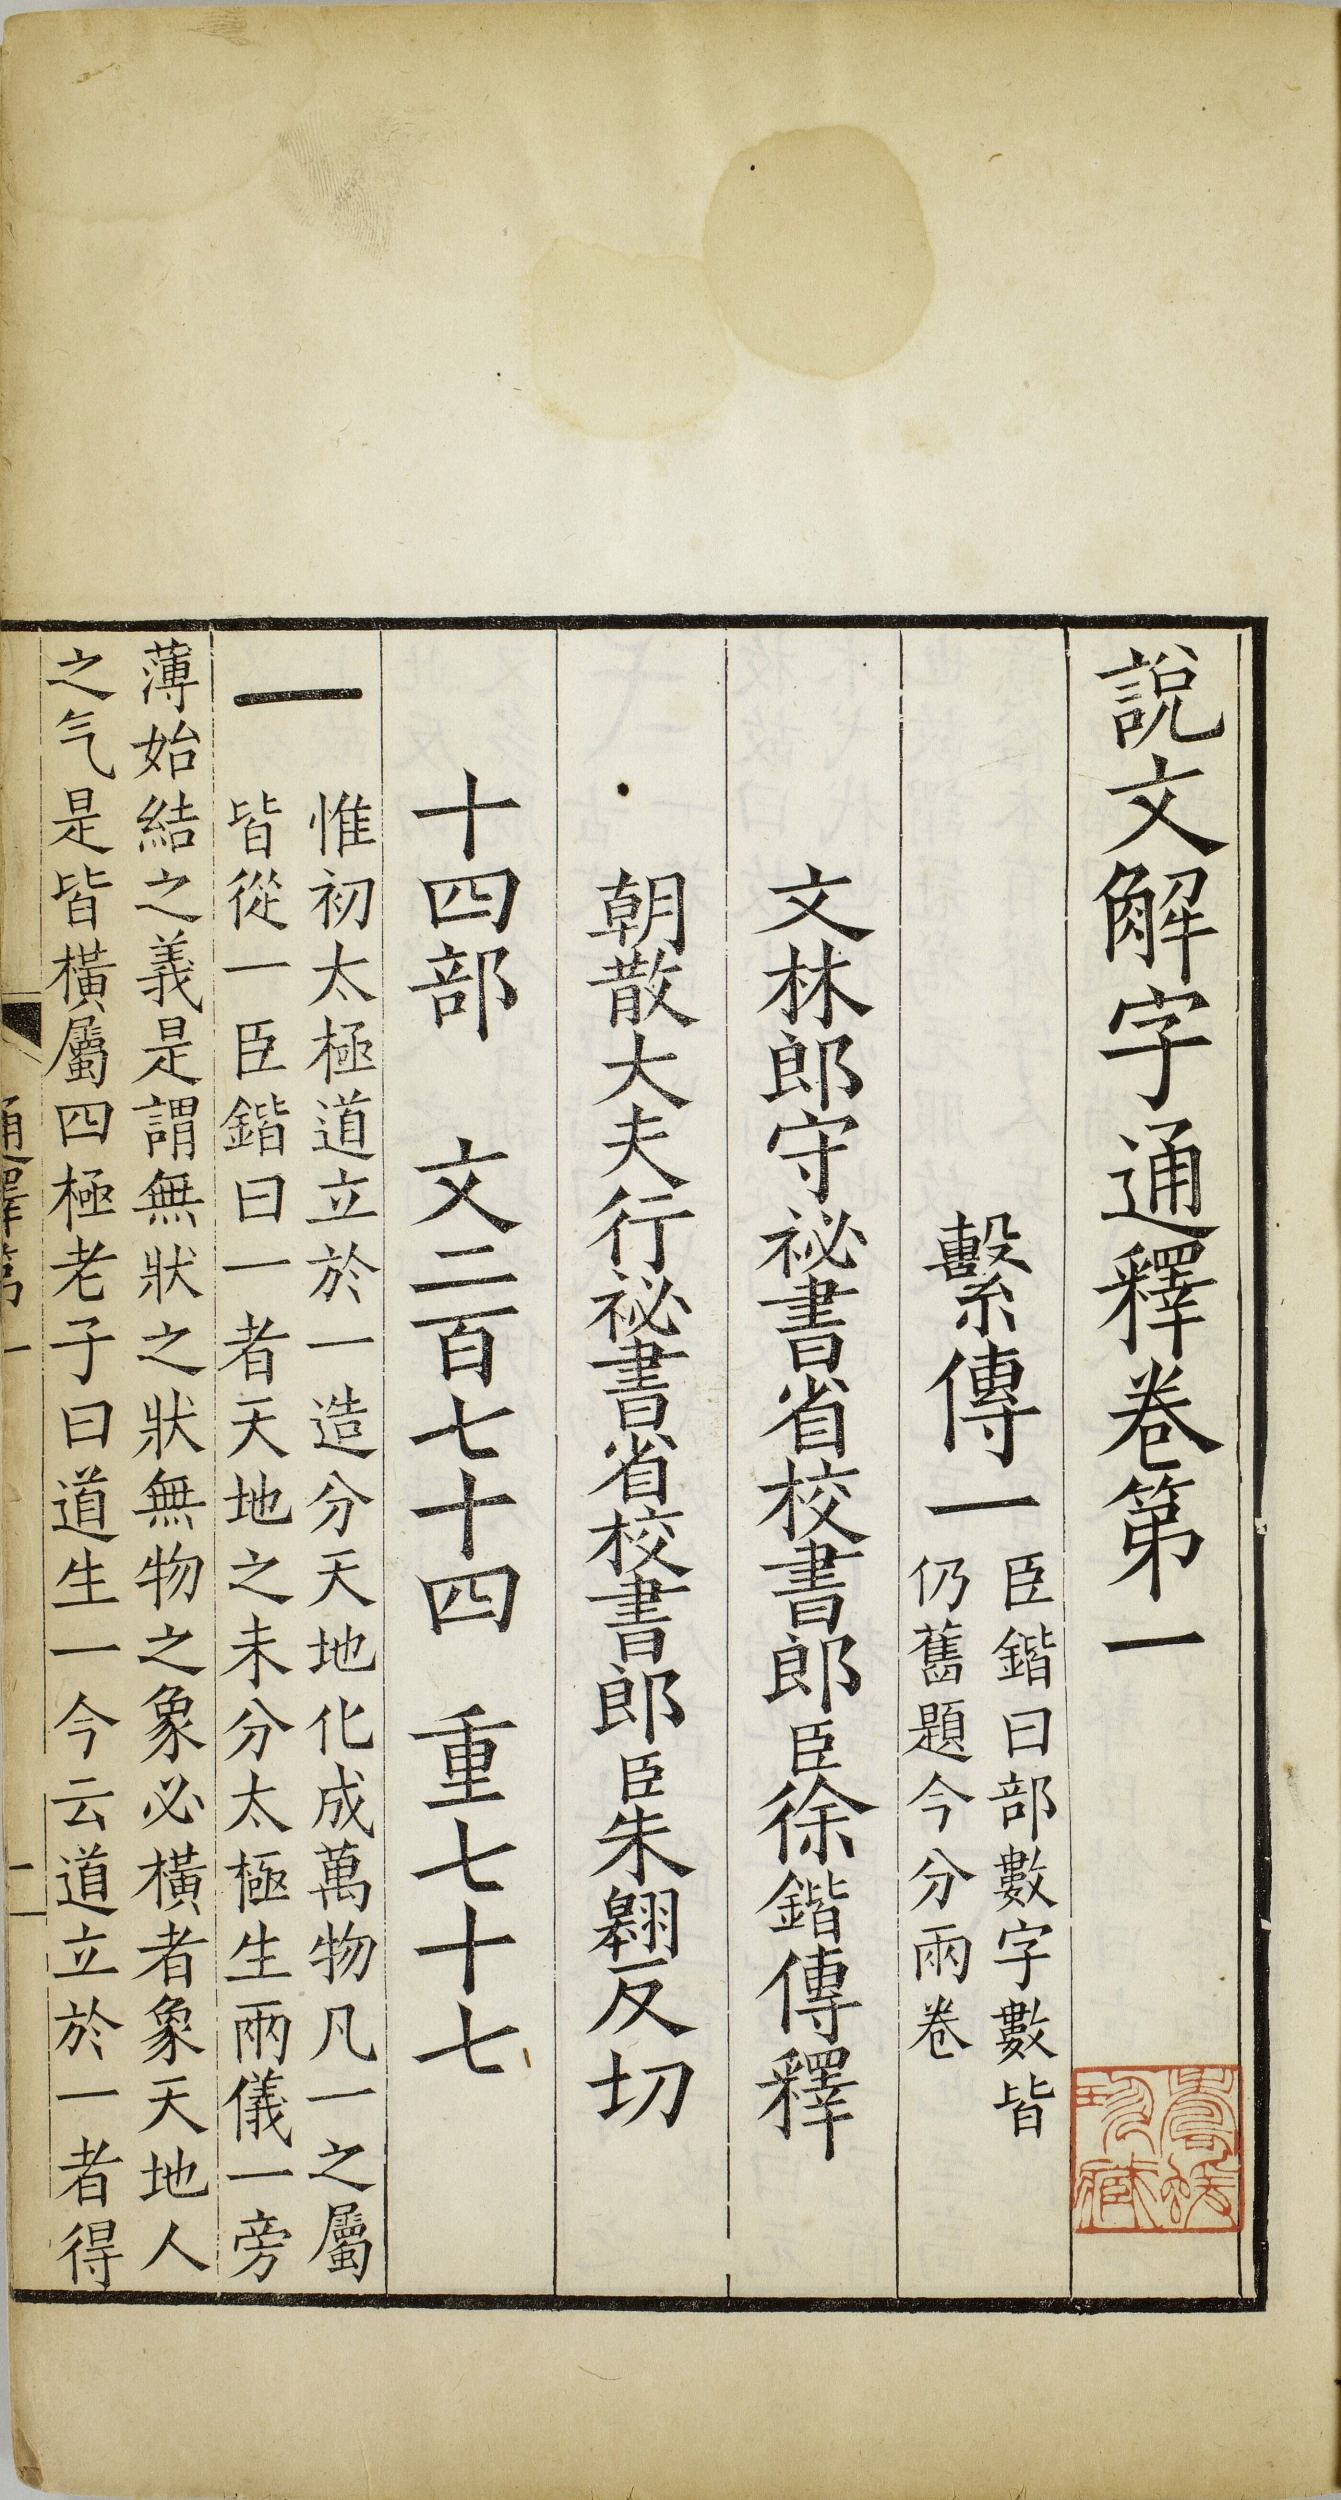 說文解字通釋卷第一
繫傳一
臣鍇曰部數字數皆
仍舊題今分兩卷
文林郎守祕書省校書郎臣徐鍇傳釋
朝散大夫行祕書省校書郎臣朱翱反切
十四部 文二百七十四 重七十七
一
惟初太極道立於一造分天地化成萬物凡一之屬
皆從一臣鍇曰一者天地之未分太極生兩儀一旁
薄始結之義是謂無狀之狀無物之象必橫者象天地人
之气是皆橫屬四極老子曰道生一今云道立於一者得
通釋第一
二